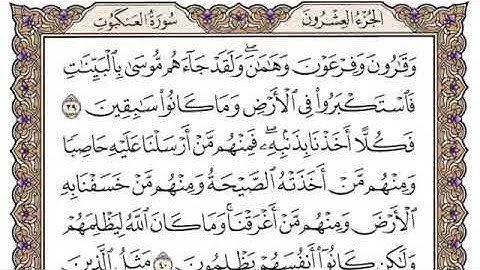 الجزء العشرون سورة العنكبوت
وَقَٰرُونَ وَفِرْعَوْنَ وَهَٰمَٰنَ ۖ وَلَقَدْ جَآءَهُم مُّوسَىٰ بِٱلْبَيِّنَٰتِ
فَٱسْتَكْبَرُوا۟ فِى ٱلْأَرْضِ وَمَا كَانُوا۟ سَٰبِقِينَ ٣٩
فَكُلًّا أَخَذْنَا بِذَنۢبِهِۦ ۖ فَمِنْهُم مَّنْ أَرْسَلْنَا عَلَيْهِ حَاصِبًا
وَمِنْهُم مَّنْ أَخَذَتْهُ ٱلصَّيْحَةُ وَمِنْهُم مَّنْ خَسَفْنَا بِهِ
ٱلْأَرْضَ وَمِنْهُم مَّنْ أَغْرَقْنَا ۚ وَمَا كَانَ ٱللَّهُ لِيَظْلِمَهُمْ
وَلَٰكِن كَانُوٓا۟ أَنفُسَهُمْ يَظْلِمُونَ ٤٠ مَثَلُ ٱلَّذِينَ